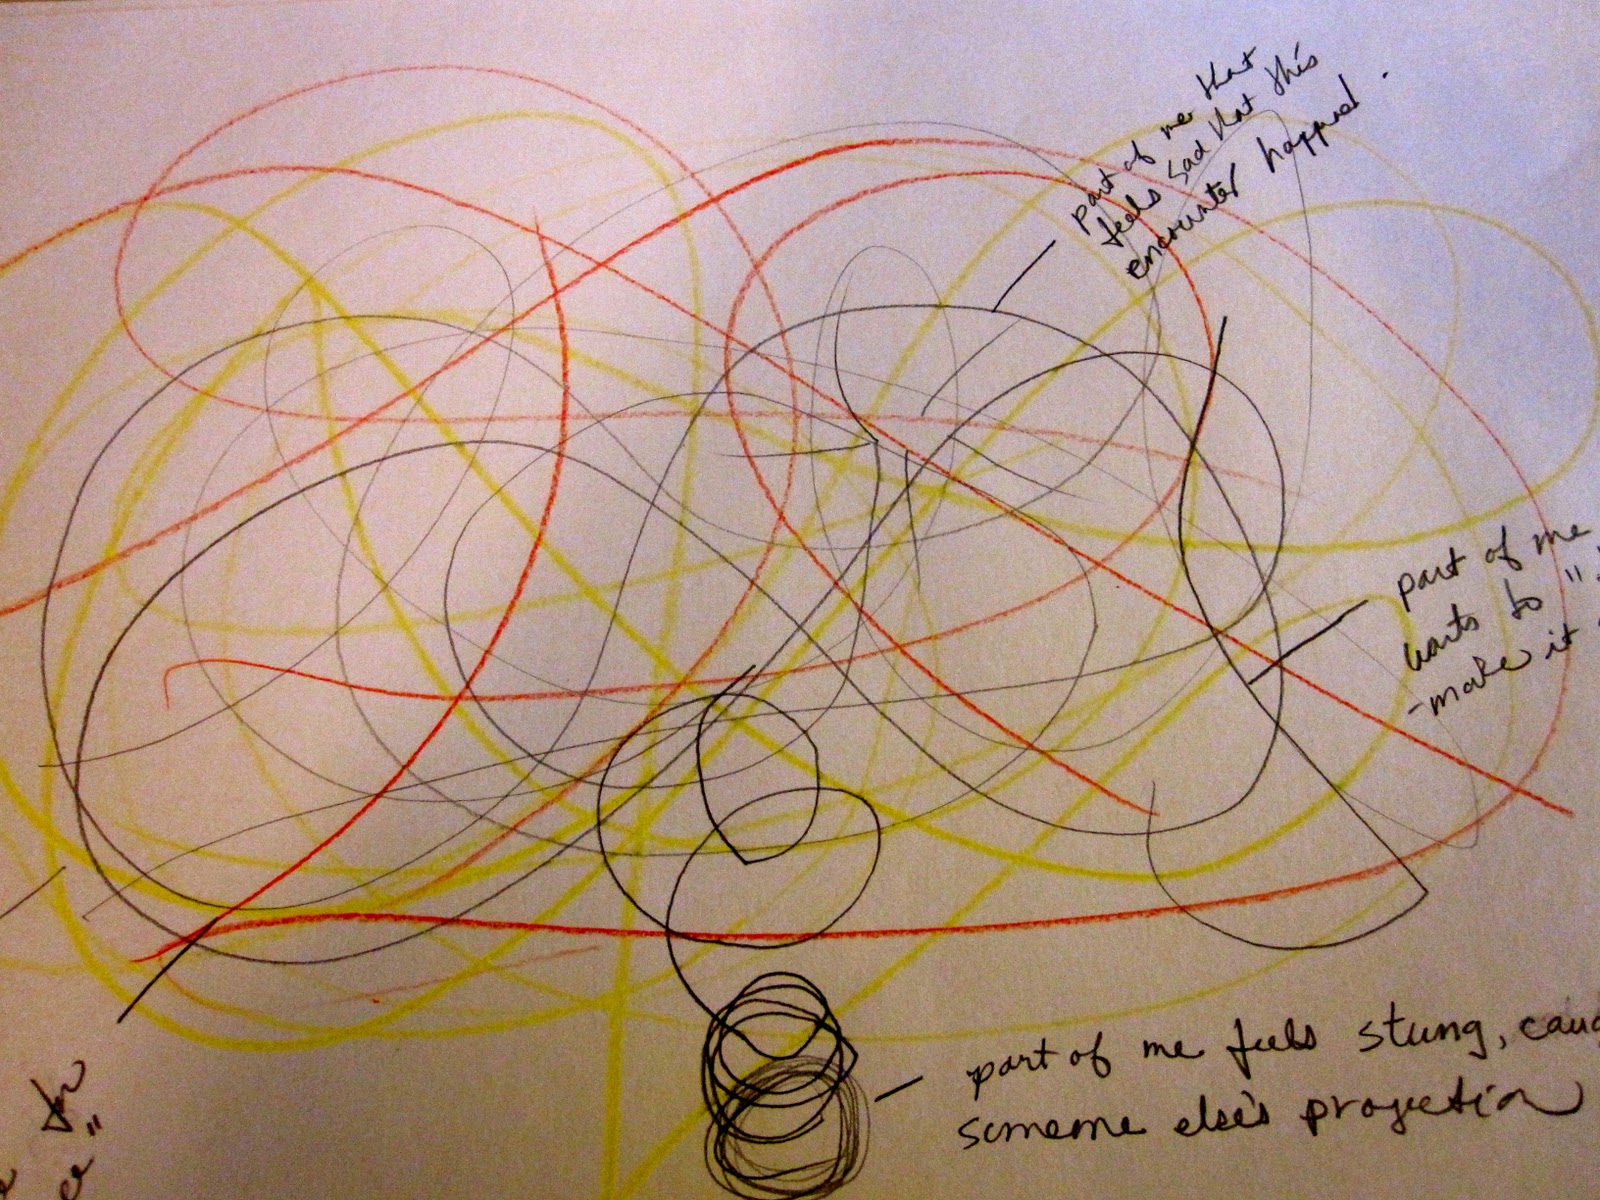 part of me that
feels sad that this
encounter happened.
part of me
wants to "
-make it
part of me feels stung, caug
someone else's projection